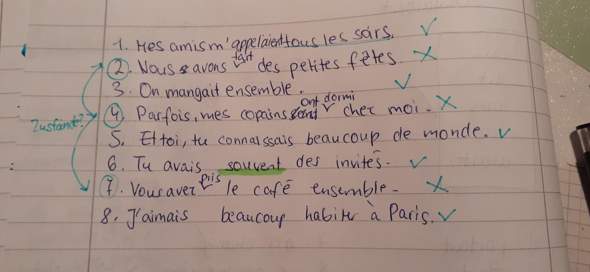 1. Mes amis m'appelaient tous les soirs. ✓
2. Nous avons fait des petites fêtes. ✗
3. On mangait ensemble. ✓
Zustand?
4. Parfois, mes copains ont dormi cher moi. ✗
5. Et toi, tu connaissais beaucoup de monde. ✓
6. Tu avais souvent des invités. ✓
7. Vous avez pris le café ensemble. ✗
8. J'aimais beaucoup habiter à Paris. ✓